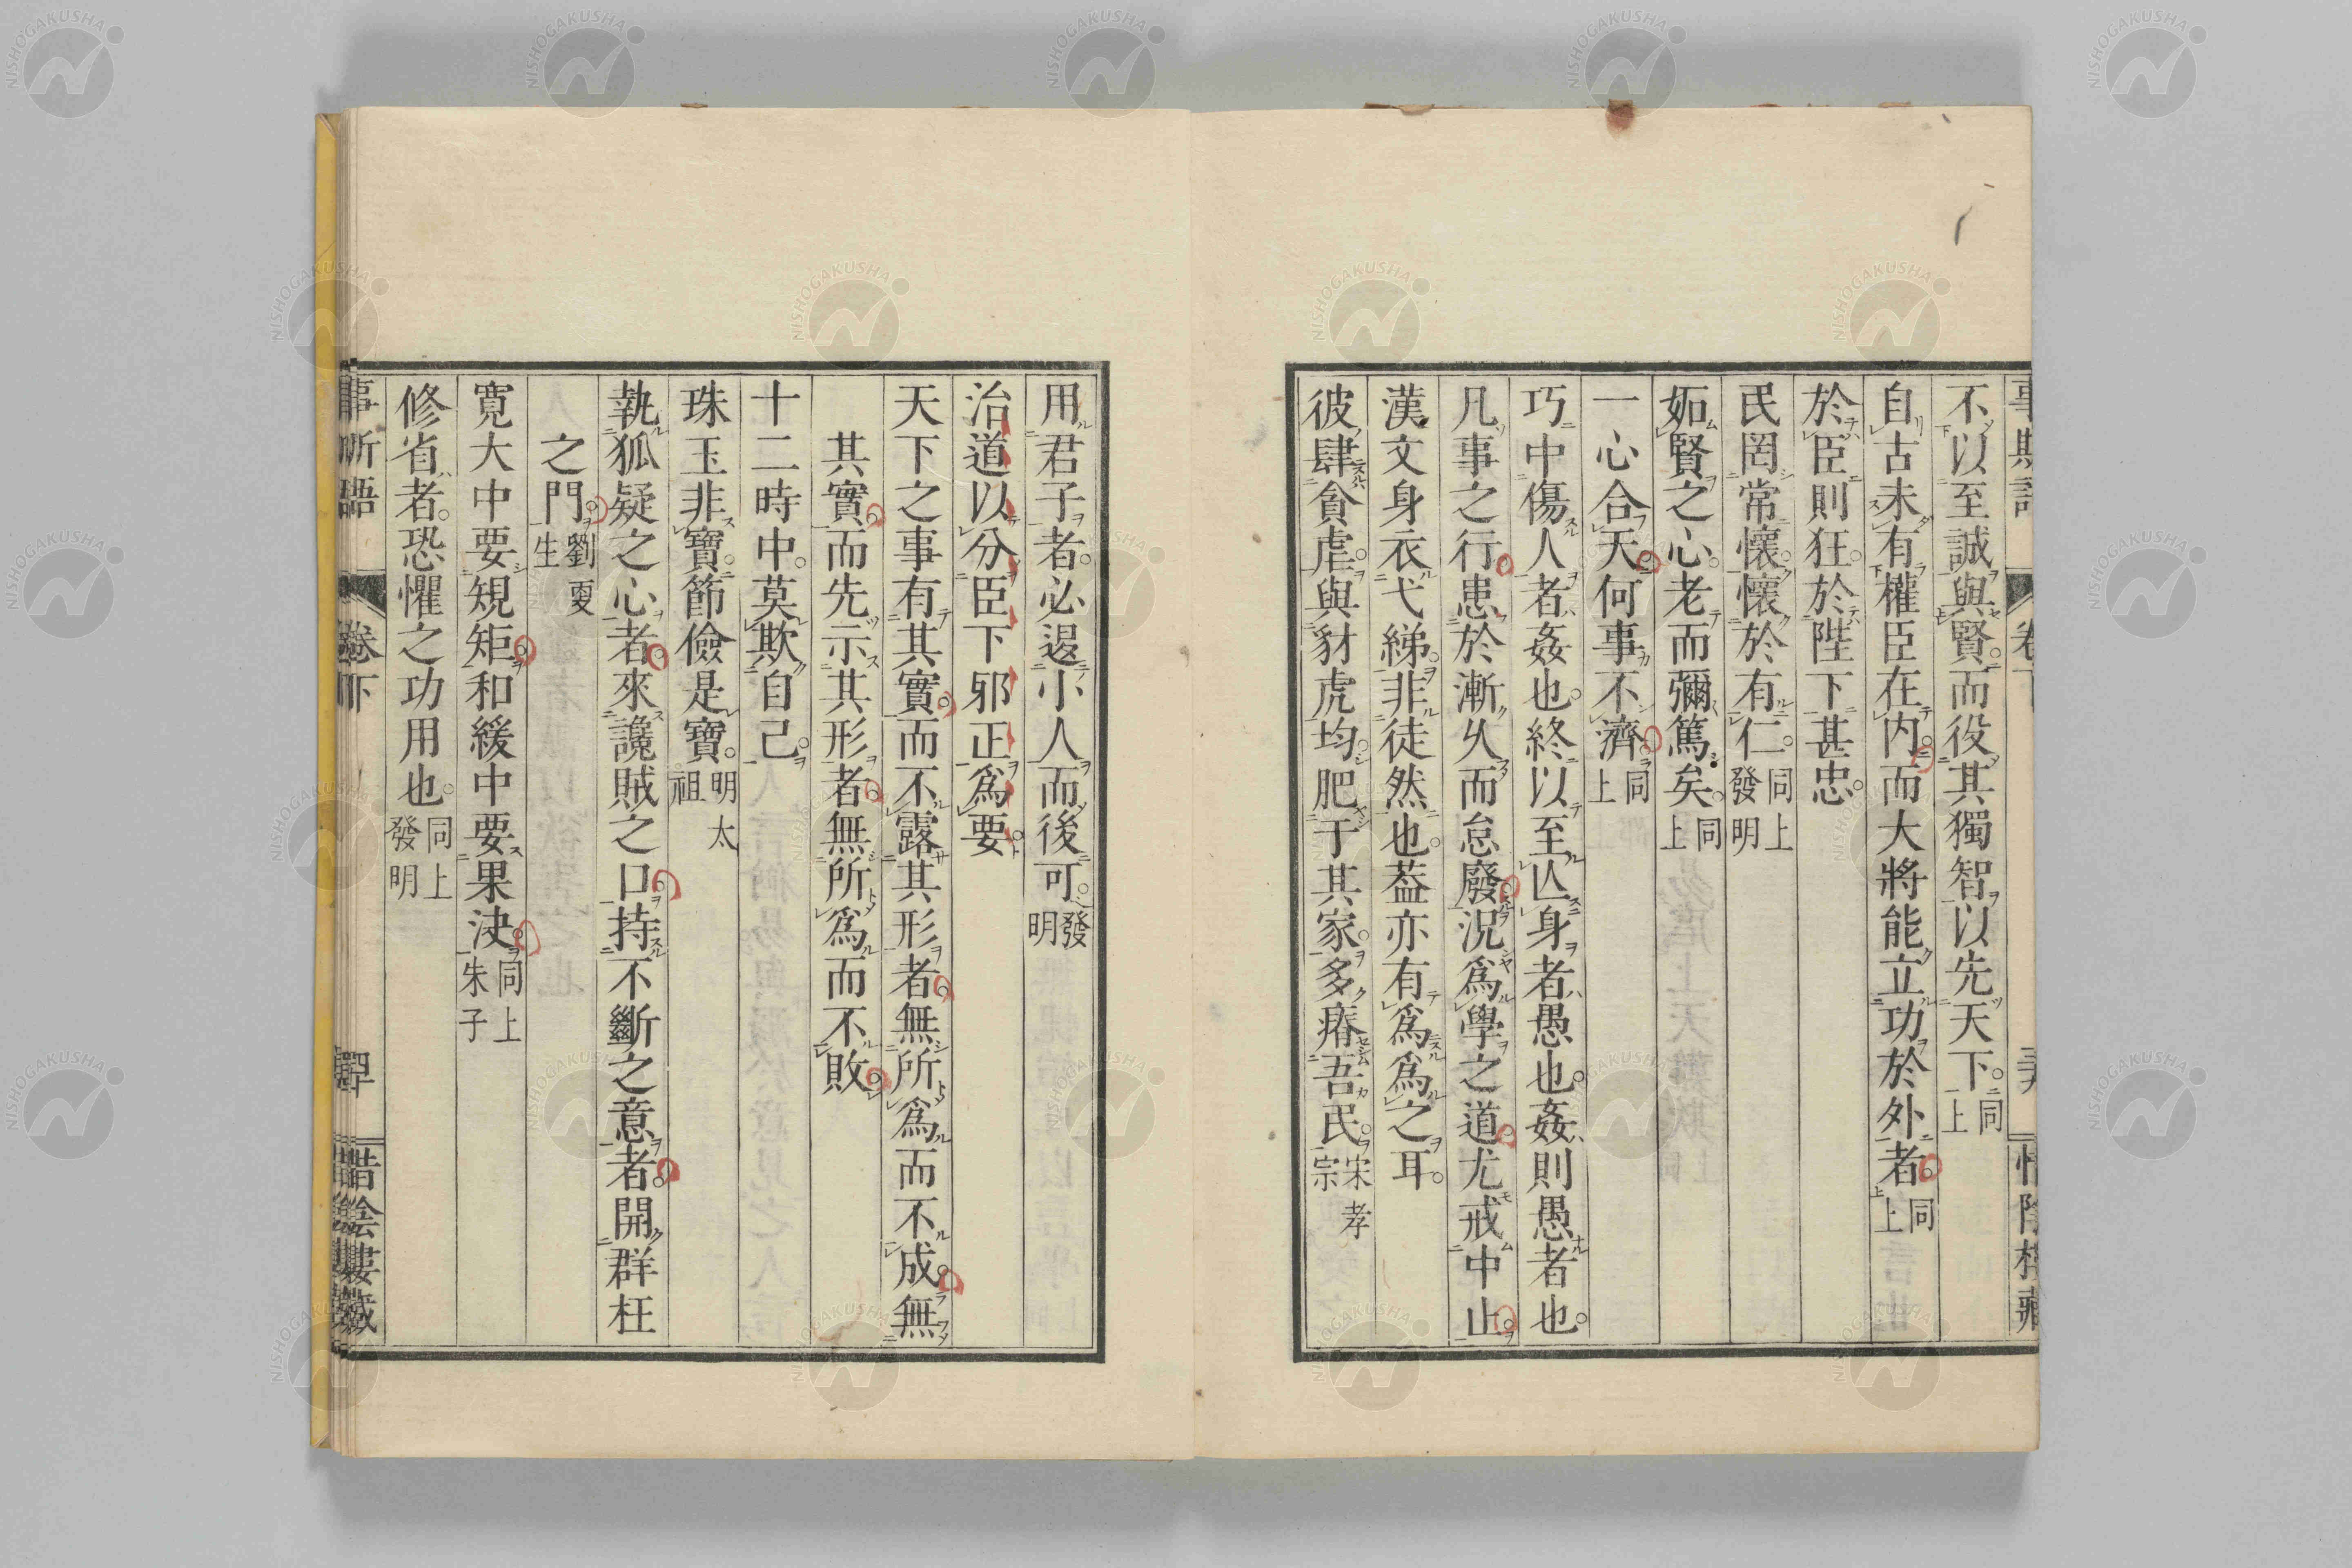 不以至誠與賢而役其獨智以先天下同上
自古未有權臣在內而大將能立功於外者同上
於臣則狂於陛下甚忠
民罔常懷懷於有仁同上發明
妬賢之心老而彌篤矣同上
一心合天何事不濟同上
巧中傷人者姦也終以至亾身者愚也姦則愚者也
凡事之行患於漸久而怠廢況爲學之道尤戒中止
漢文身衣弋綈非徒然也葢亦有爲爲之耳
彼肆貪虐與豺虎均肥于其家多瘠吾民宋孝宗
用君子者必退小人而後可發明
治道以分臣下邪正爲要
天下之事有其實而不露其形者無所爲而不成無
其實而先示其形者無所爲而不敗
十二時中莫欺自己
珠玉非寶節儉是寶明太祖
執狐疑之心者來讒賊之口持不斷之意者開群枉
之門劉更生
寬大中要規矩和緩中要果決同上朱子
修省者恐懼之功用也同上發明
卷下
NISHOGAKUSHA